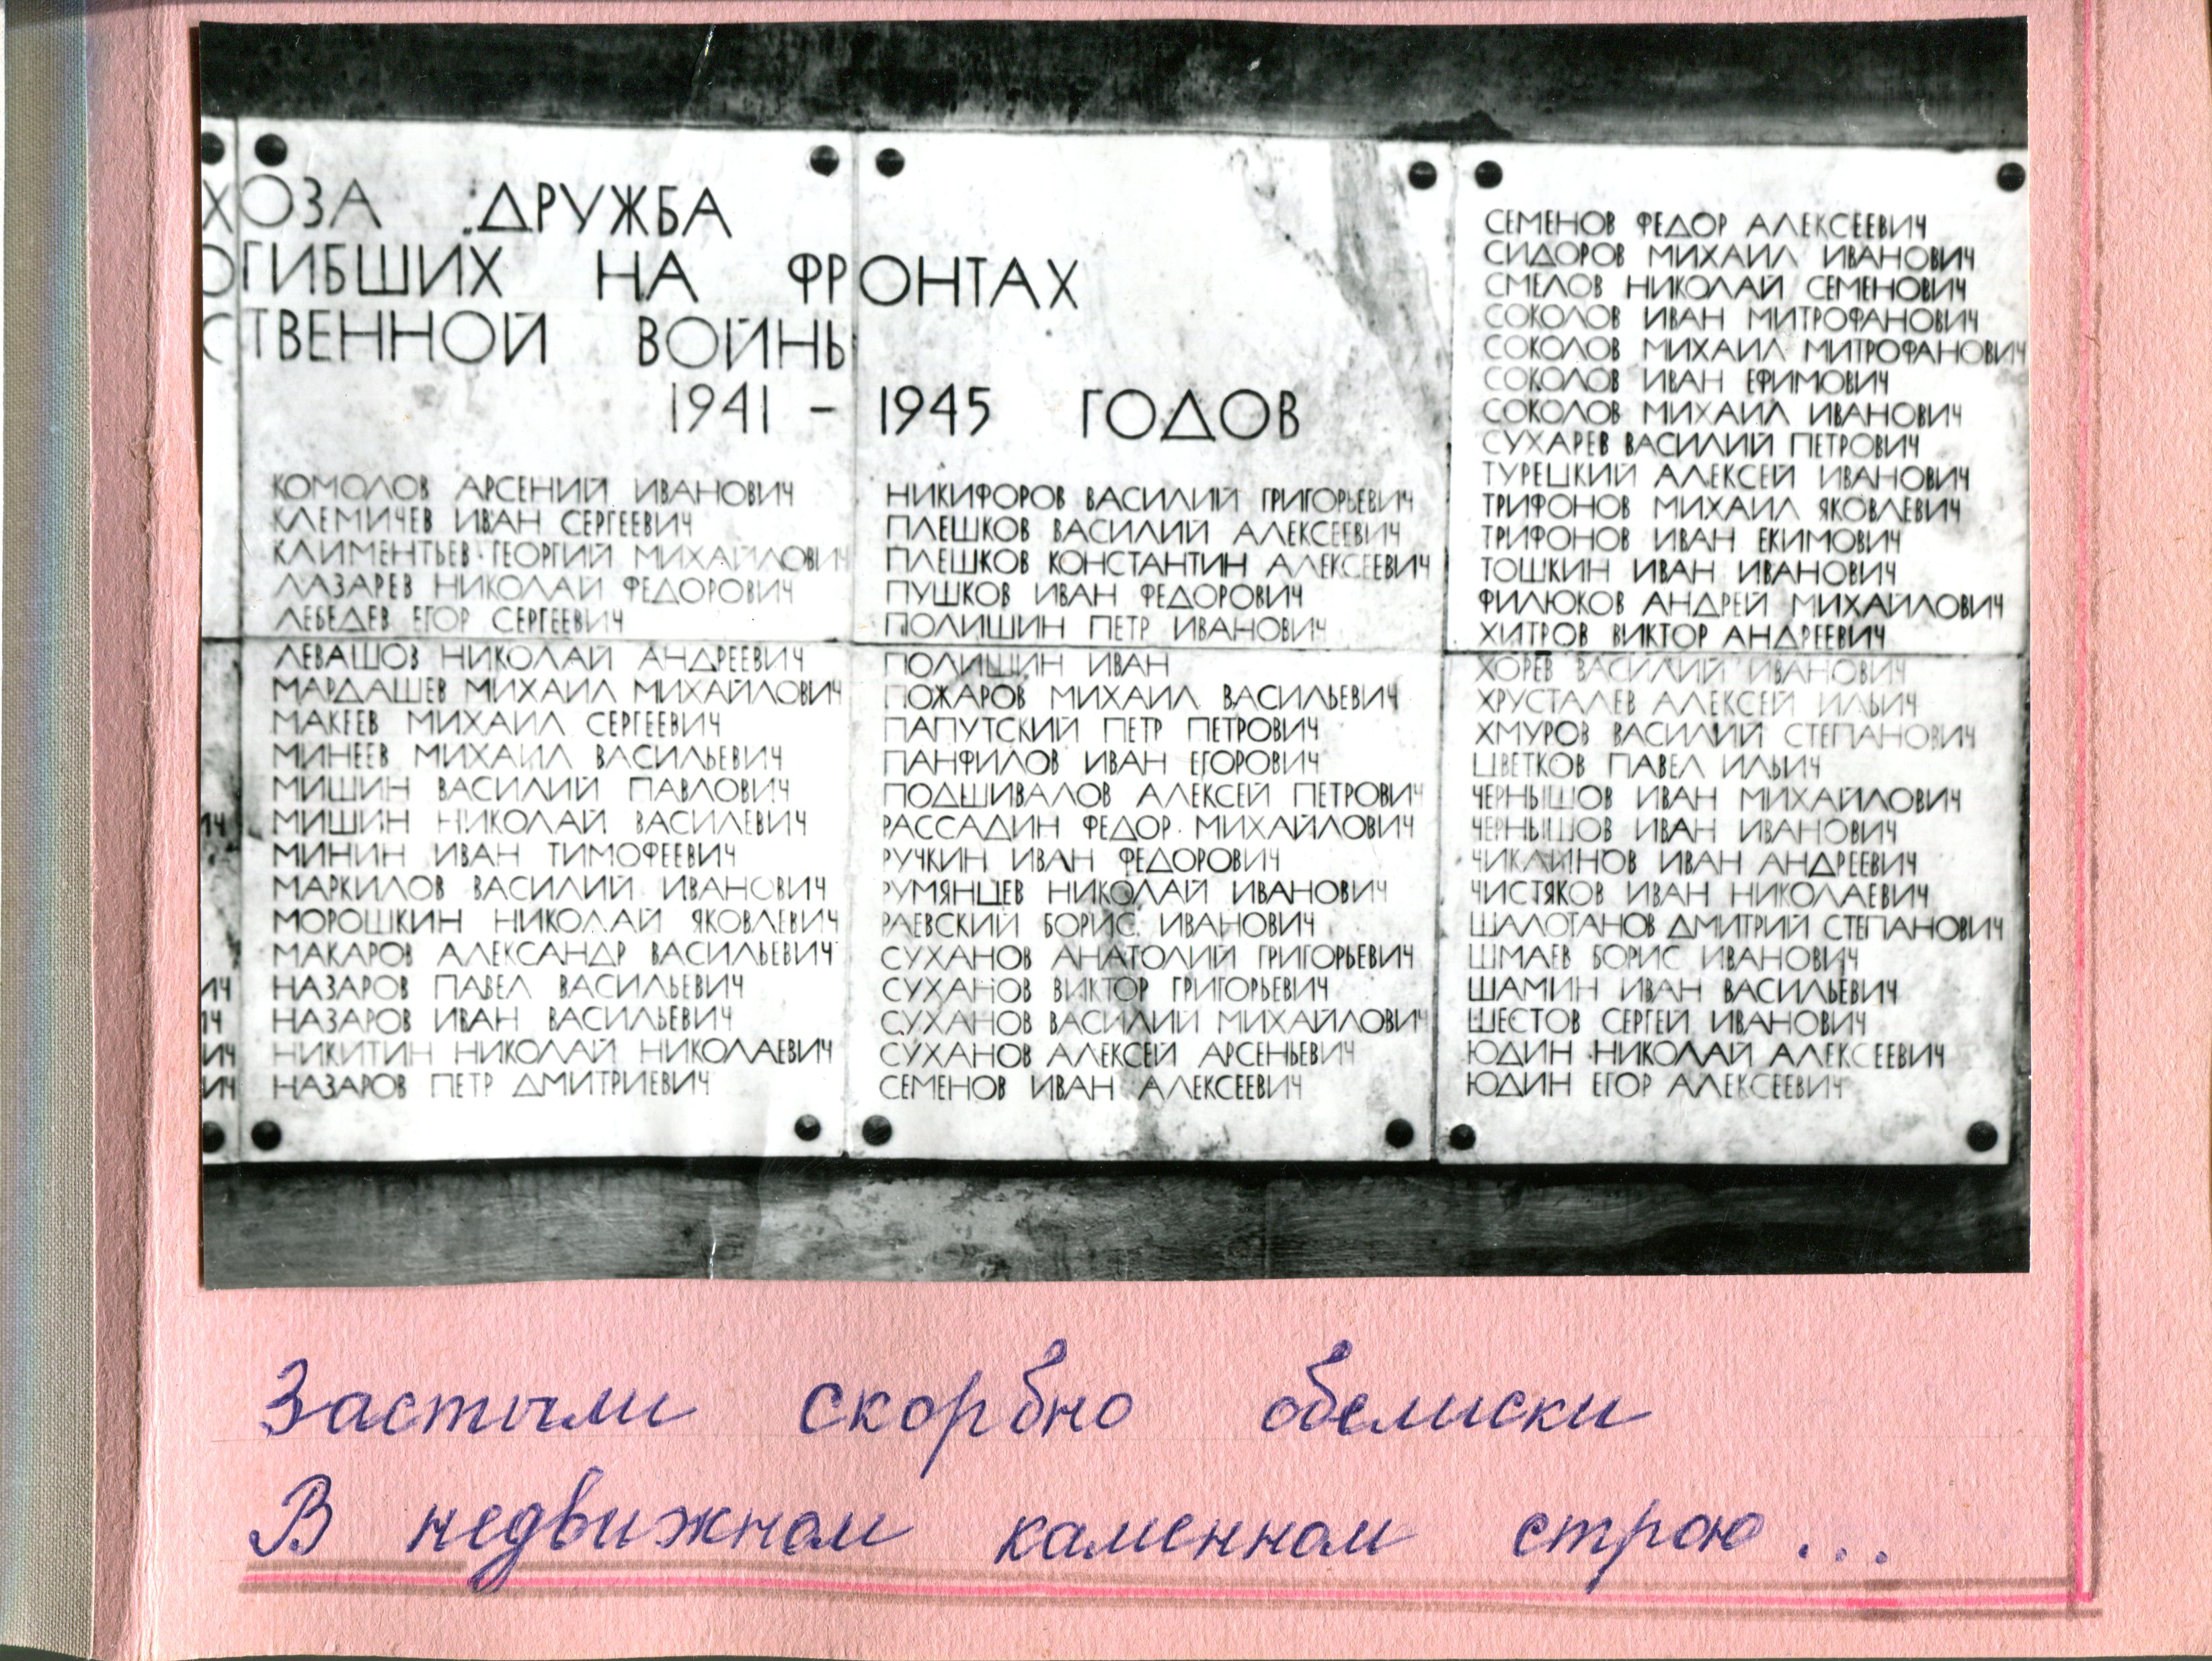 ХОЗА "ДРУЖБА
ОГИБШИХ НА ФРОНТАХ
СТВЕННОЙ ВОЙНЫ
1941 – 1945 ГОДОВ
КОМОЛОВ АРСЕНИЙ ИВАНОВИЧ
КЛЕМИЧЕВ ИВАН СЕРГЕЕВИЧ
КЛИМЕНТЬЕВ ГЕОРГИЙ МИХАЙЛОВИЧ
ЛАЗАРЕВ НИКОЛАЙ ФЕДОРОВИЧ
ЛЕБЕДЕВ ЕГОР СЕРГЕЕВИЧ
ЛЕВАШОВ НИКОЛАЙ АНДРЕЕВИЧ
МАРДАШЕВ МИХАИЛ МИХАЙЛОВИЧ
МАКЕЕВ МИХАИЛ СЕРГЕЕВИЧ
МИНЕЕВ МИХАИЛ ВАСИЛЬЕВИЧ
МИШИН ВАСИЛИЙ ПАВЛОВИЧ
МИШИН НИКОЛАЙ ВАСИЛЕВИЧ
МИНИН ИВАН ТИМОФЕЕВИЧ
МАРКИЛОВ ВАСИЛИЙ ИВАНОВИЧ
МОРОШКИН НИКОЛАЙ ЯКОВЛЕВИЧ
МАКАРОВ АЛЕКСАНДР ВАСИЛЬЕВИЧ
НАЗАРОВ ПАВЕЛ ВАСИЛЬЕВИЧ
НАЗАРОВ ИВАН ВАСИЛЬЕВИЧ
НИКИТИН НИКОЛАЙ НИКОЛАЕВИЧ
НАЗАРОВ ПЕТР ДМИТРИЕВИЧ
НИКИФОРОВ ВАСИЛИЙ ГРИГОРЬЕВИЧ
ПЛЕШКОВ ВАСИЛИЙ АЛЕКСЕЕВИЧ
ПЛЕШКОВ КОНСТАНТИН АЛЕКСЕЕВИЧ
ПУШКОВ ИВАН ФЕДОРОВИЧ
ПОЛИШИН ПЕТР ИВАНОВИЧ
ПОЛИШИН ИВАН
ПОЖАРОВ МИХАИЛ ВАСИЛЬЕВИЧ
ПАПУТСКИЙ ПЕТР ПЕТРОВИЧ
ПАНФИЛОВ ИВАН ЕГОРОВИЧ
ПОДШИВАЛОВ АЛЕКСЕЙ ПЕТРОВИЧ
РАССАДИН ФЕДОР МИХАЙЛОВИЧ
РУЧКИН ИВАН ФЕДОРОВИЧ
РУМЯНЦЕВ НИКОЛАЙ ИВАНОВИЧ
РАЕВСКИЙ БОРИС ИВАНОВИЧ
СУХАНОВ АНАТОЛИЙ ГРИГОРЬЕВИЧ
СУХАНОВ ВИКТОР ГРИГОРЬЕВИЧ
СУХАНОВ ВАСИЛИЙ МИХАЙЛОВИЧ
СУХАНОВ АЛЕКСЕЙ АРСЕНЬЕВИЧ
СЕМЕНОВ ИВАН АЛЕКСЕЕВИЧ
СЕМЕНОВ ФЕДОР АЛЕКСЕЕВИЧ
СИДОРОВ МИХАИЛ ИВАНОВИЧ
СМЕЛОВ НИКОЛАЙ СЕМЕНОВИЧ
СОКОЛОВ ИВАН МИТРОФАНОВИЧ
СОКОЛОВ МИХАИЛ МИТРОФАНОВИЧ
СОКОЛОВ ИВАН ЕФИМОВИЧ
СОКОЛОВ МИХАИЛ ИВАНОВИЧ
СУХАРЕВ ВАСИЛИЙ ПЕТРОВИЧ
ТУРЕЦКИЙ АЛЕКСЕЙ ИВАНОВИЧ
ТРИФОНОВ МИХАИЛ ЯКОВЛЕВИЧ
ТРИФОНОВ ИВАН ЕКИМОВИЧ
ТОШКИН ИВАН ИВАНОВИЧ
ФИЛЮКОВ АНДРЕЙ МИХАЙЛОВИЧ
ХИТРОВ ВИКТОР АНДРЕЕВИЧ
ХОРЕВ ВАСИЛИЙ ИВАНОВИЧ
ХРУСТАЛЕВ АЛЕКСЕЙ ИЛЬИЧ
ХМУРОВ ВАСИЛИЙ СТЕПАНОВИЧ
ЦВЕТКОВ ПАВЕЛ ИЛЬИЧ
ЧЕРНЫШОВ ИВАН МИХАЙЛОВИЧ
ЧЕРНЫШОВ ИВАН ИВАНОВИЧ
ЧИКЛИНОВ ИВАН АНДРЕЕВИЧ
ЧИСТЯКОВ ИВАН НИКОЛАЕВИЧ
ШАЛОТАНОВ ДМИТРИЙ СТЕПАНОВИЧ
ШМАЕВ БОРИС ИВАНОВИЧ
ШАМИН ИВАН ВАСИЛЬЕВИЧ
ШЕСТОВ СЕРГЕЙ ИВАНОВИЧ
ЮДИН НИКОЛАЙ АЛЕКСЕЕВИЧ
ЮДИН ЕГОР АЛЕКСЕЕВИЧ
Застыли скорбно обелиски
В недвижном каменном строю...